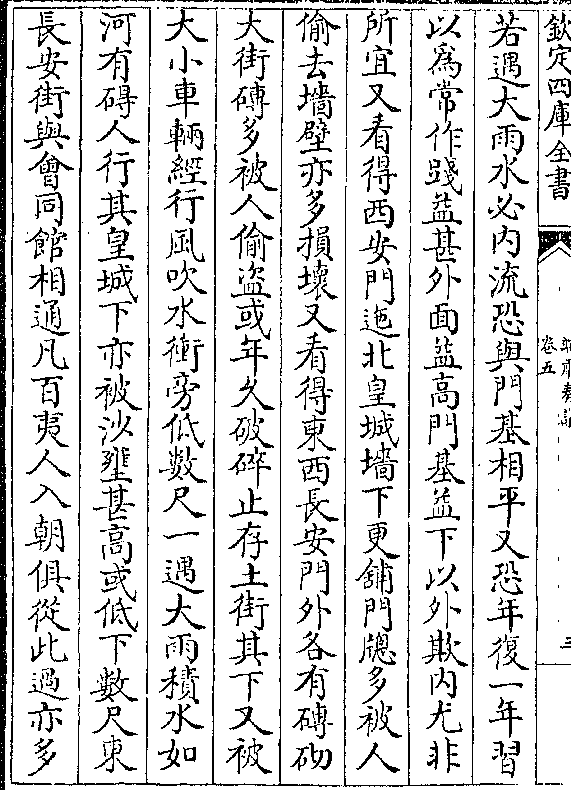 欽定四庫全書
卷五
三
若遇大雨水必内流恐與門基相平又恐年復一年習
以爲常作踐益甚外面益高門基益下以外欺内尤非
所宜又看得西安門迤北皇城墻下更鋪門牕多被人
偷去墻壁亦多損壞又看得東西長安門外各有磚砌
大街磚多被人偷盗或年久破碎止存土街其下又被
大小車輛經行風吹水衝旁低數尺一遇大雨積水如
河有碍人行其皇城下亦被沙壅甚高或低下數尺東
長安街與會同館相通凡百夷人入朝俱從此過亦多